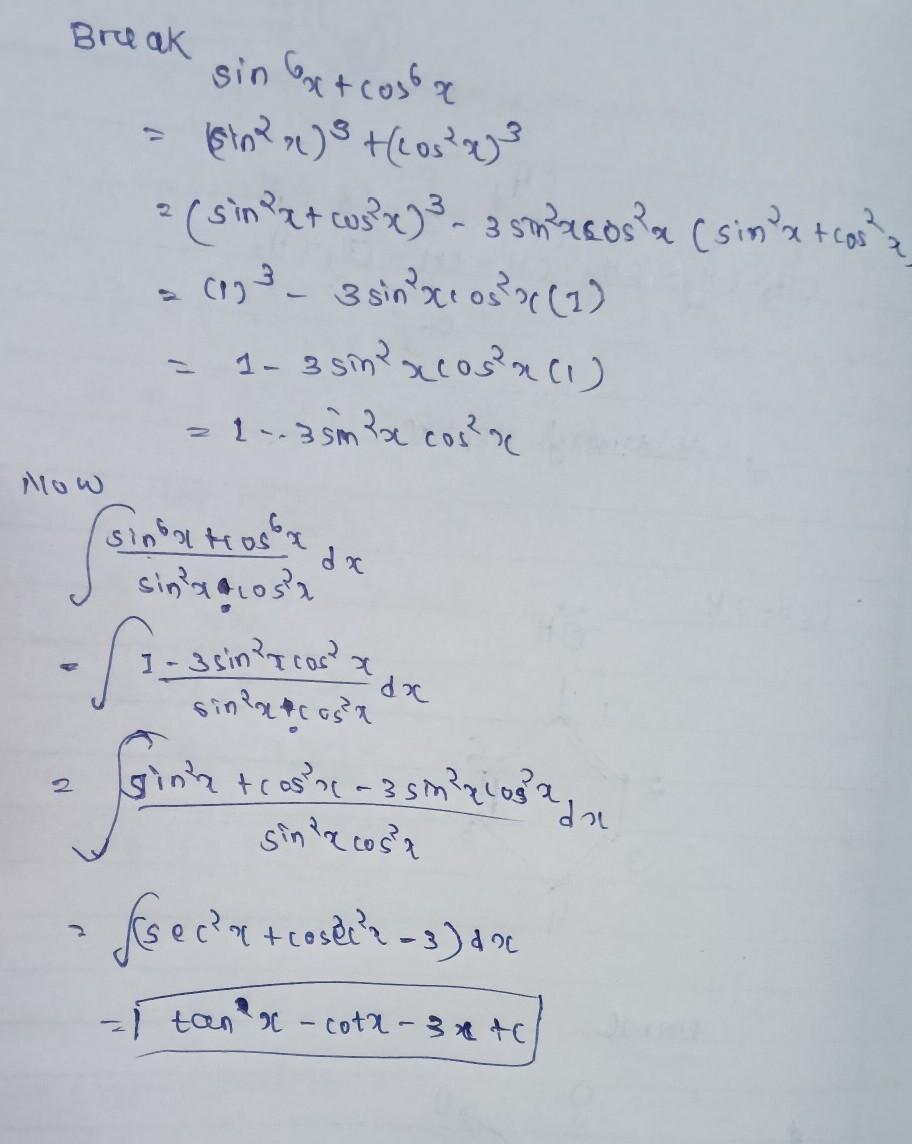 Break
sin⁶x + cos⁶x
= (sin²x)³ + (cos²x)³
= (sin²x + cos²x)³ - 3 sin²x cos²x (sin²x + cos²x)
= (1)³ - 3 sin²x cos²x (1)
= 1 - 3 sin²x cos²x (1)
= 1 - 3 sin²x cos²x
Now
∫ (sin⁶x + cos⁶x)/(sin²x . cos²x) dx
= ∫ (1 - 3 sin²x cos²x)/(sin²x . cos²x) dx
= ∫ (sin²x + cos²x - 3 sin²x cos²x)/(sin²x cos²x) dx
= ∫ (sec²x + cosec²x - 3) dx
= tan x - cotx - 3x + c